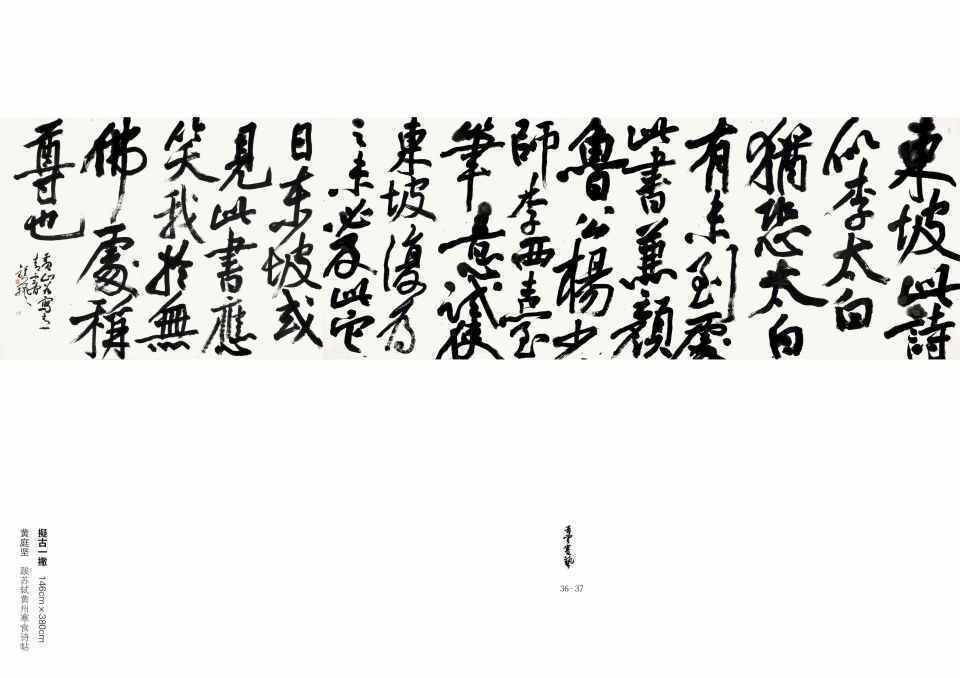 東坡此詩
似李太白
猶恐太白
有未到處
此書兼顏
魯公楊少
師李西臺
筆意試使
東坡復為
之未必及此它
日東坡或
見此書應
笑我於無
佛處稱
尊也
擬古一撇 146cm×380cm
黄庭坚 跋苏轼黄州寒食诗帖
36-37